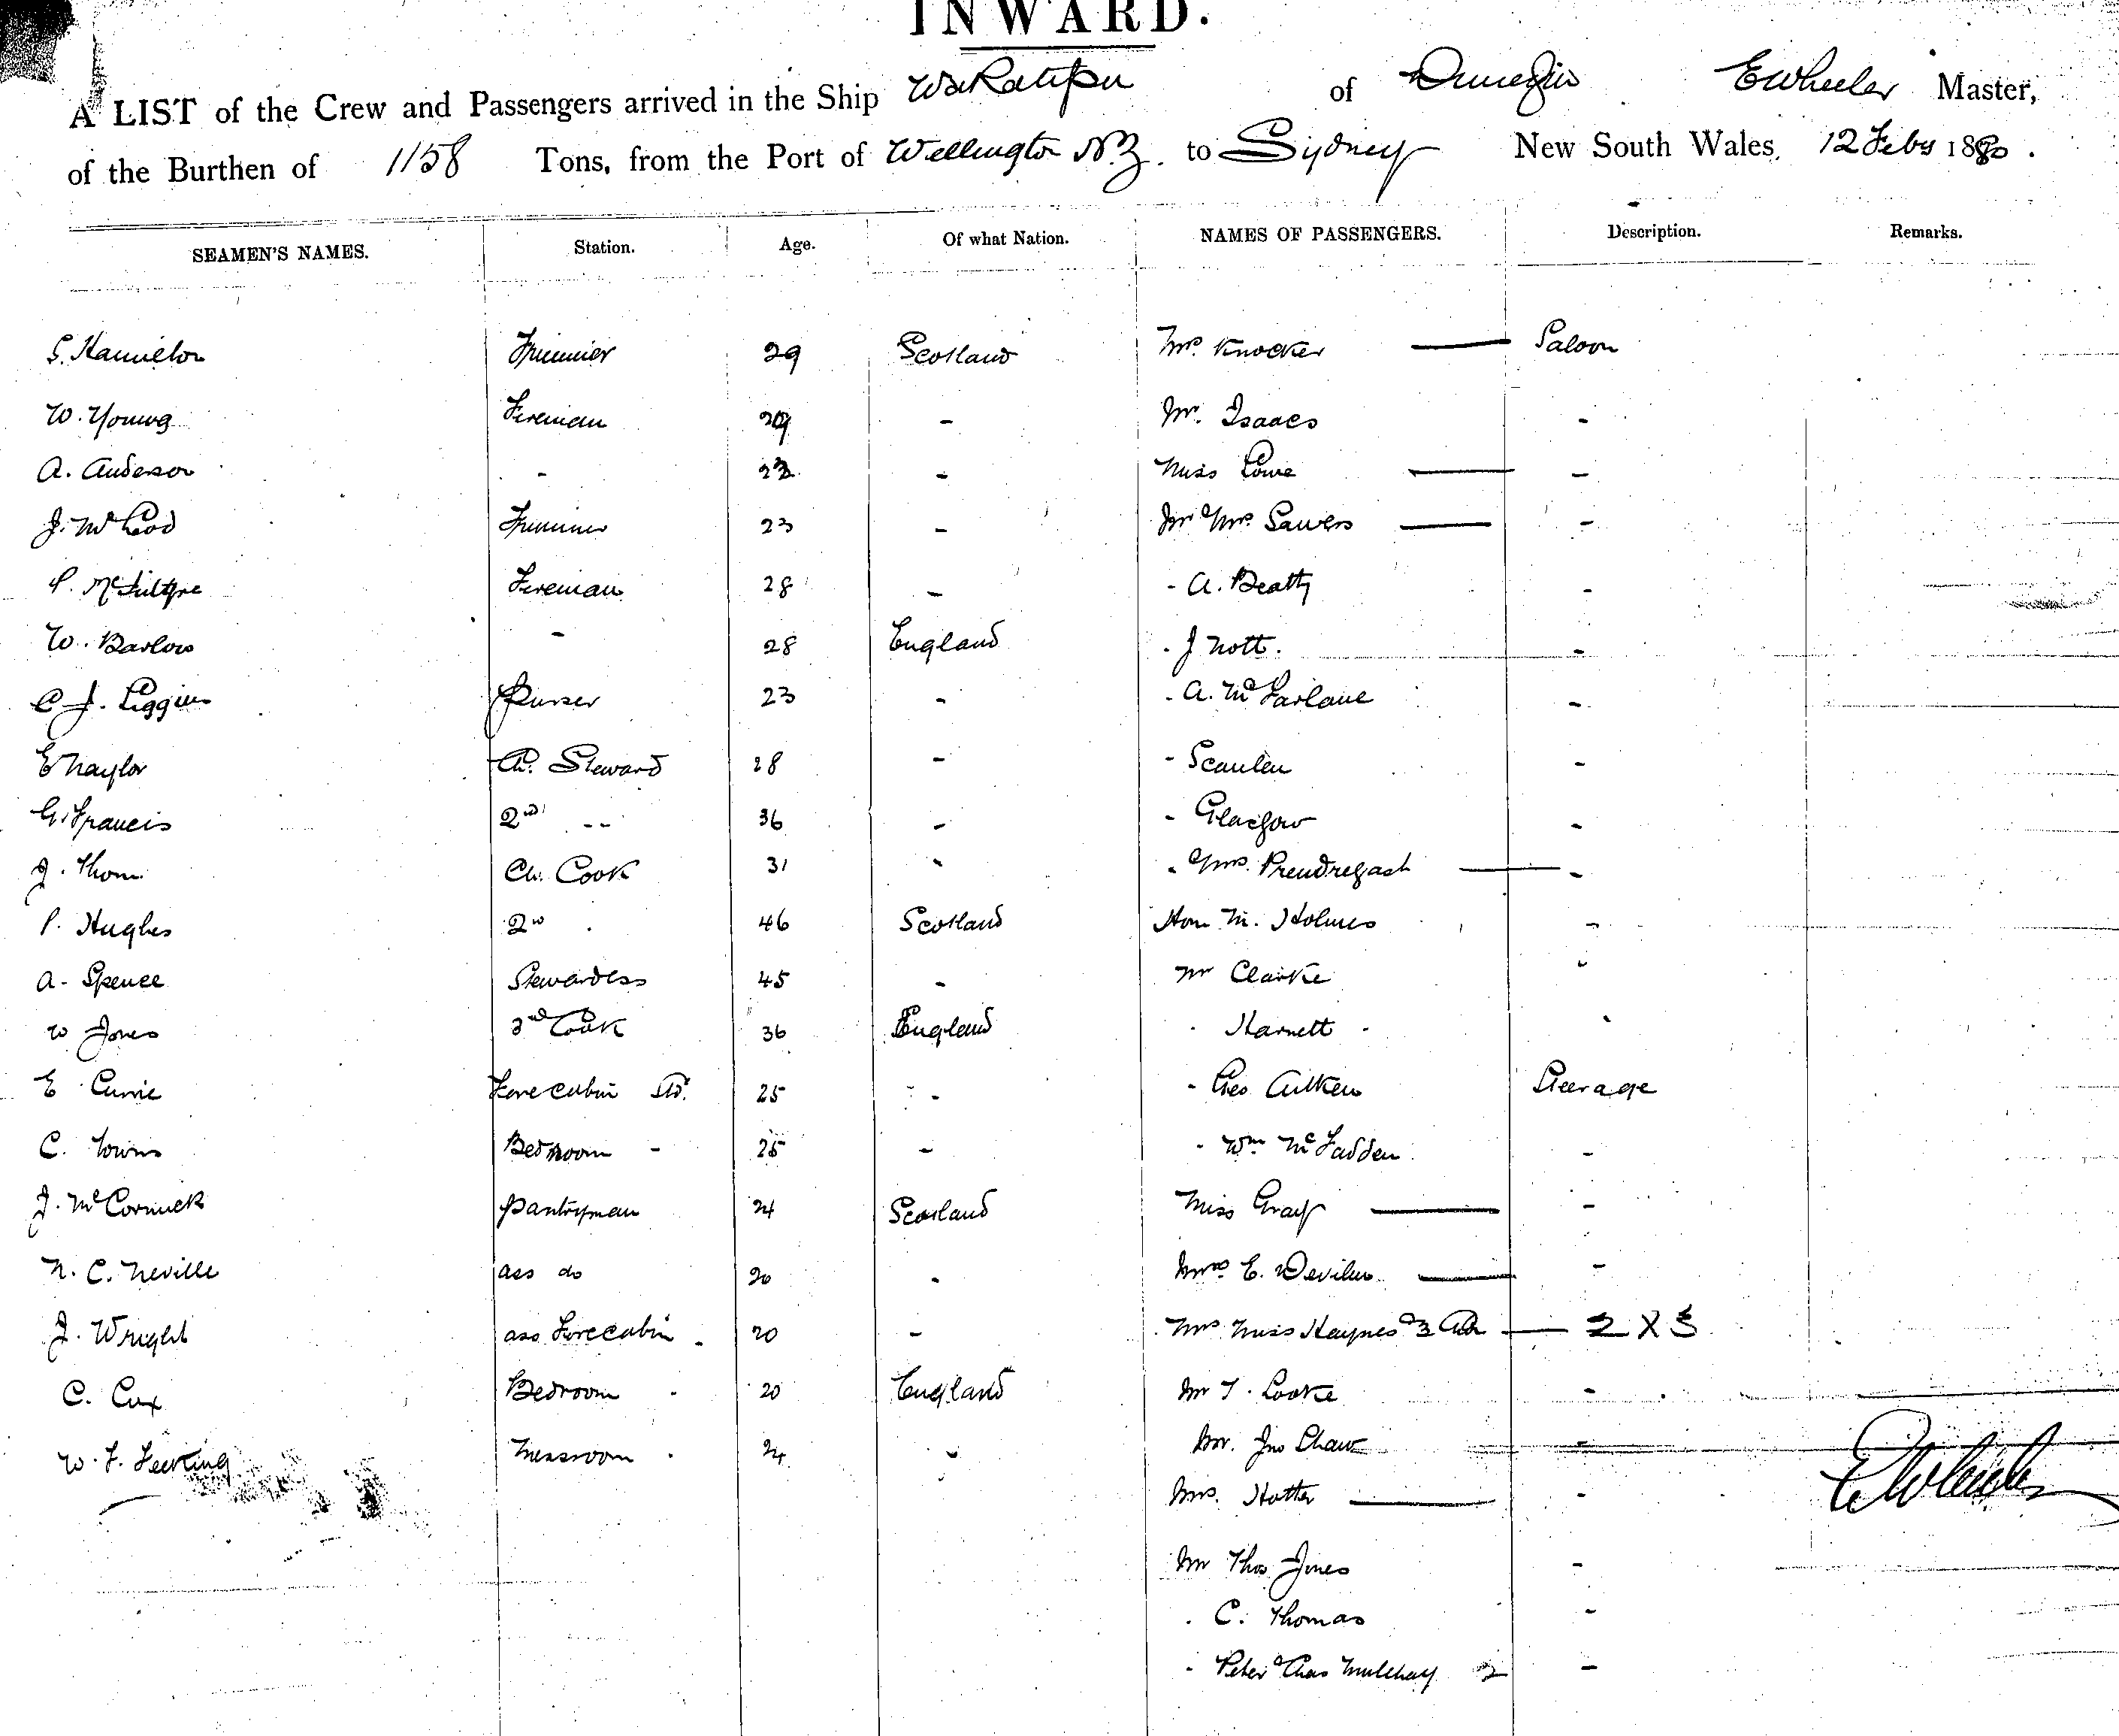 INWARD.
A LIST of the Crew and Passengers arrived in the Ship Wakatipu of Dunedin E Wheeler Master,
of the Burthen of 1158 Tons, from the Port of Wellington N.Z. to Sydney New South Wales, 12 Feby 1880.
SEAMEN'S NAMES. Station. Age. Of what Nation. NAMES OF PASSENGERS. Description. Remarks.
S. Hamilton Trimmer 29 Scotland Mrs. Knocker — Saloon
W. Young Fireman 29 - Mr. Isaacs -
A. Anderson - 23 - Miss Lowe — -
J. McLeod Trimmer 23 - Mr & Mrs. Sawers — -
P. McIntyre Fireman 28 - - A. Beatty -
W. Barlow - 28 England - J Nott. -
C J. Liggins Purser 23 - - A. McFarlane -
E Naylor Ch. Steward 28 - - Scanlen -
G. Francis 2nd -- 36 - - Glasgow -
J. Thom Ch. Cook 31 - - & Mrs. Prendregast — -
P. Hughes 2nd . 46 Scotland Hon M. Holmes -
A. Spence Stewardess 45 - Mr Clarke -
W Jones 3rd Cook 36 England - Harnett -
E Currie Forecabin Std. 25 - - Geo Aitken Steerage
C. Towns Bedroom - 25 - - Wm McFadden -
J. McCormick Pantryman 24 Scotland Miss Gray — -
N. C. Neville ass do 20 - Mrs E. — -
J. Wright ass Forecabin - 20 - Mrs Miss Haynes & 3 Ch — 2 X 3
C. Cox Bedroom - 20 England Mr T. Cooke -
W. F. Messroom - 24 - Mr. Jno Shaw -
Mrs. Hatter — -
E Wheeler
Mr Thos Jones -
- C. Thomas -
- Peter & Chas Mulchay 2 -